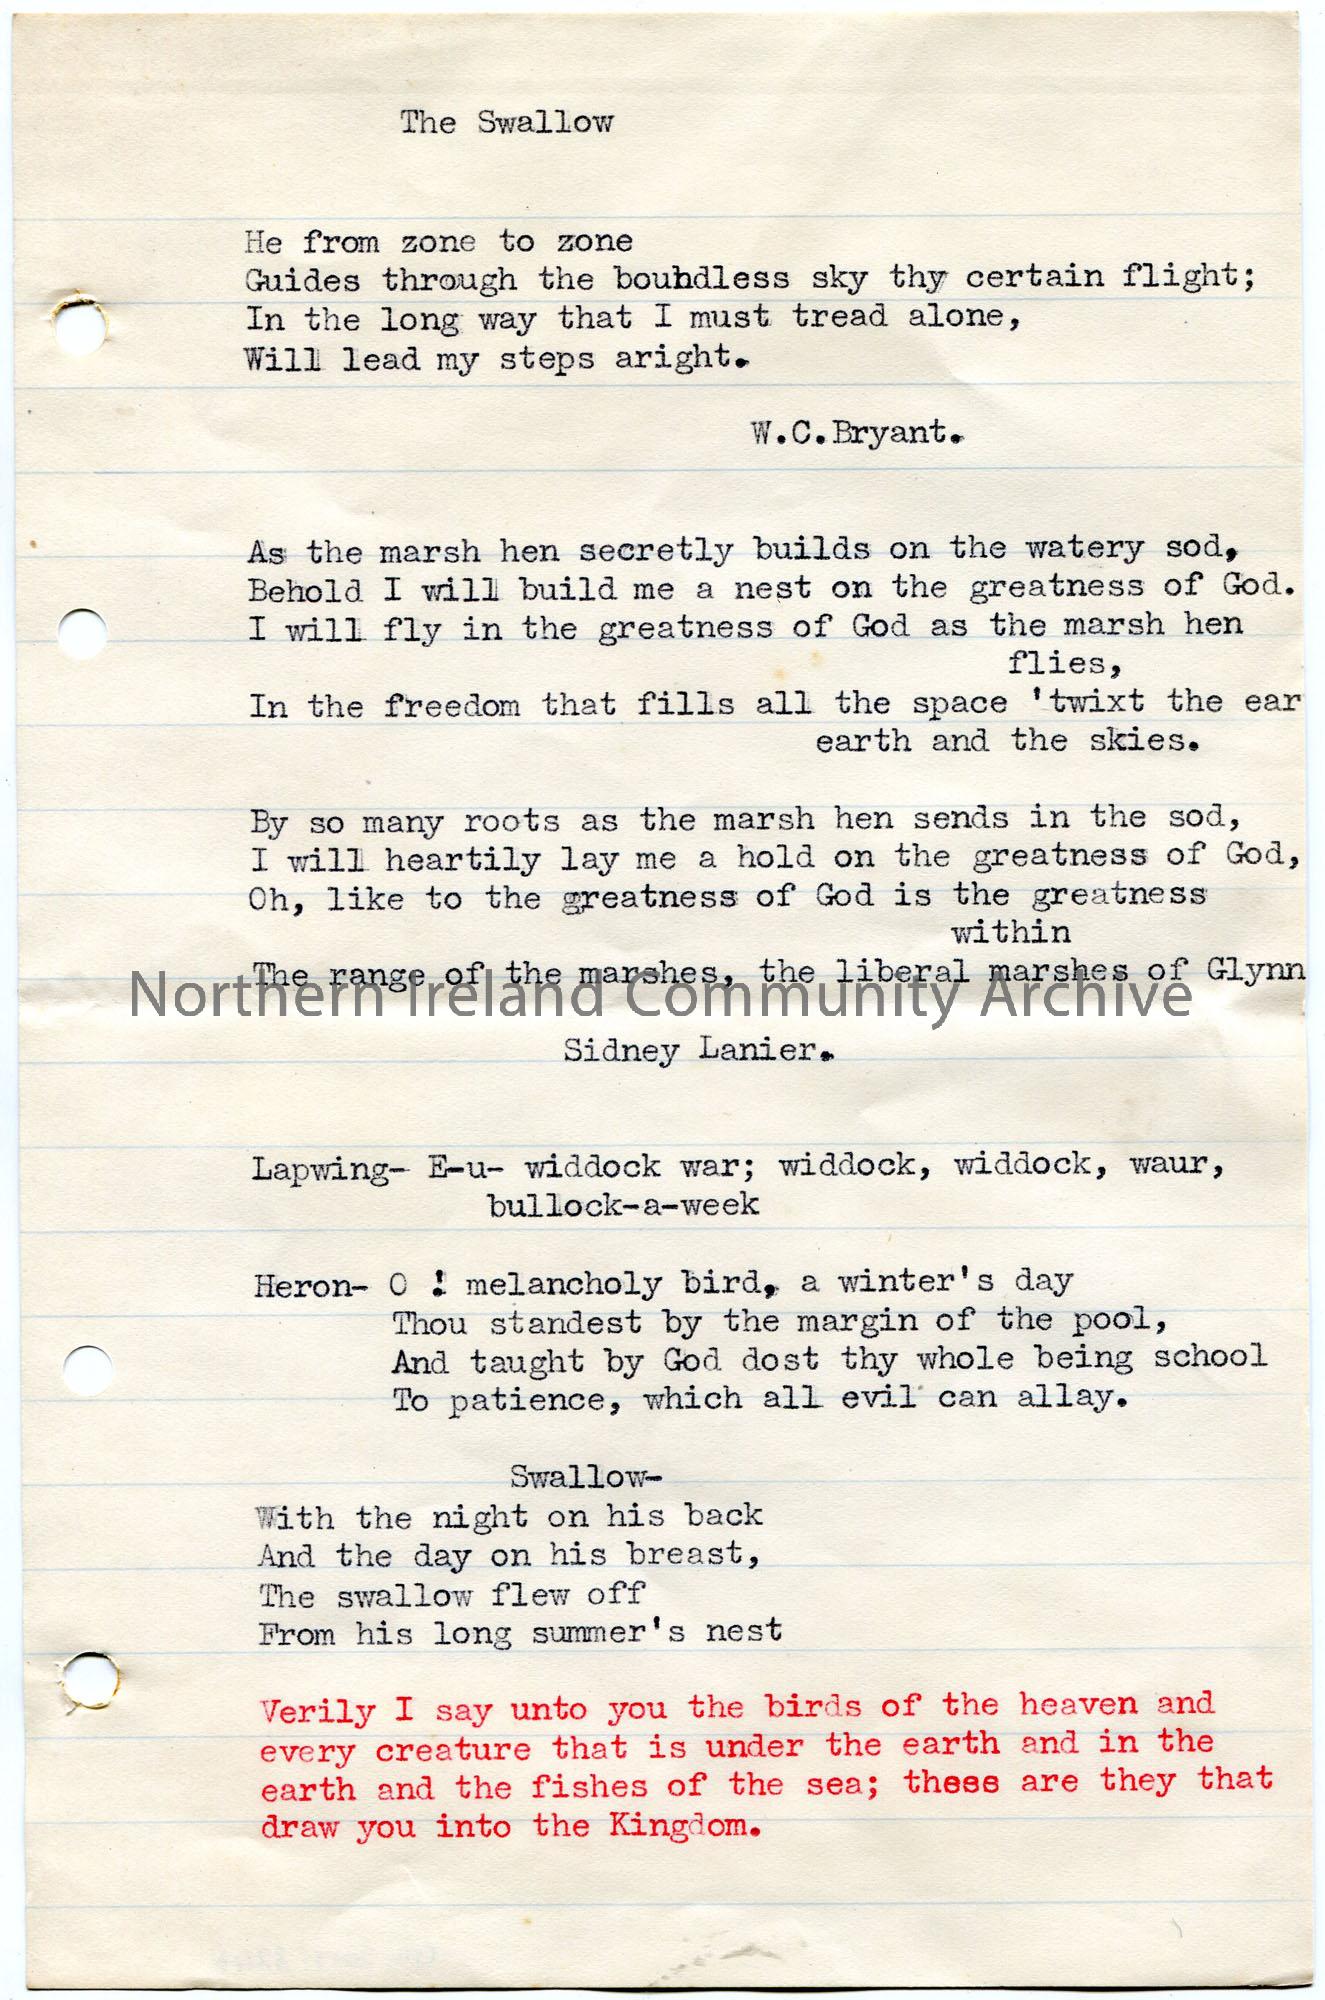 The Swallow
He from zone to zone
Guides through the bouhdless sky thy certain flight;
In the long way that I must tread alone,
Will lead my steps aright.
W.C.Bryant.
As the marsh hen secretly builds on the watery sod,
Behold I will build me a nest on the greatness of God.
I will fly in the greatness of God as the marsh hen
flies,
In the freedom that fills all the space 'twixt the ear
earth and the skies.
By so many roots as the marsh hen sends in the sod,
I will heartily lay me a hold on the greatness of God,
Oh, like to the greatness of God is the greatness
within
The range of the marshes, the liberal marshes of Glynn
Northern Ireland Community Archive
Sidney Lanier.
Lapwing- E-u- widdock war; widdock, widdock, waur,
bullock-a-week
Heron- O ! melancholy bird, a winter's day
Thou standest by the margin of the pool,
And taught by God dost thy whole being school
To patience, which all evil can allay.
Swallow-
With the night on his back
And the day on his breast,
The swallow flew off
From his long summer's nest
Verily I say unto you the birds of the heaven and
every creature that is under the earth and in the
earth and the fishes of the sea; these are they that
draw you into the Kingdom.